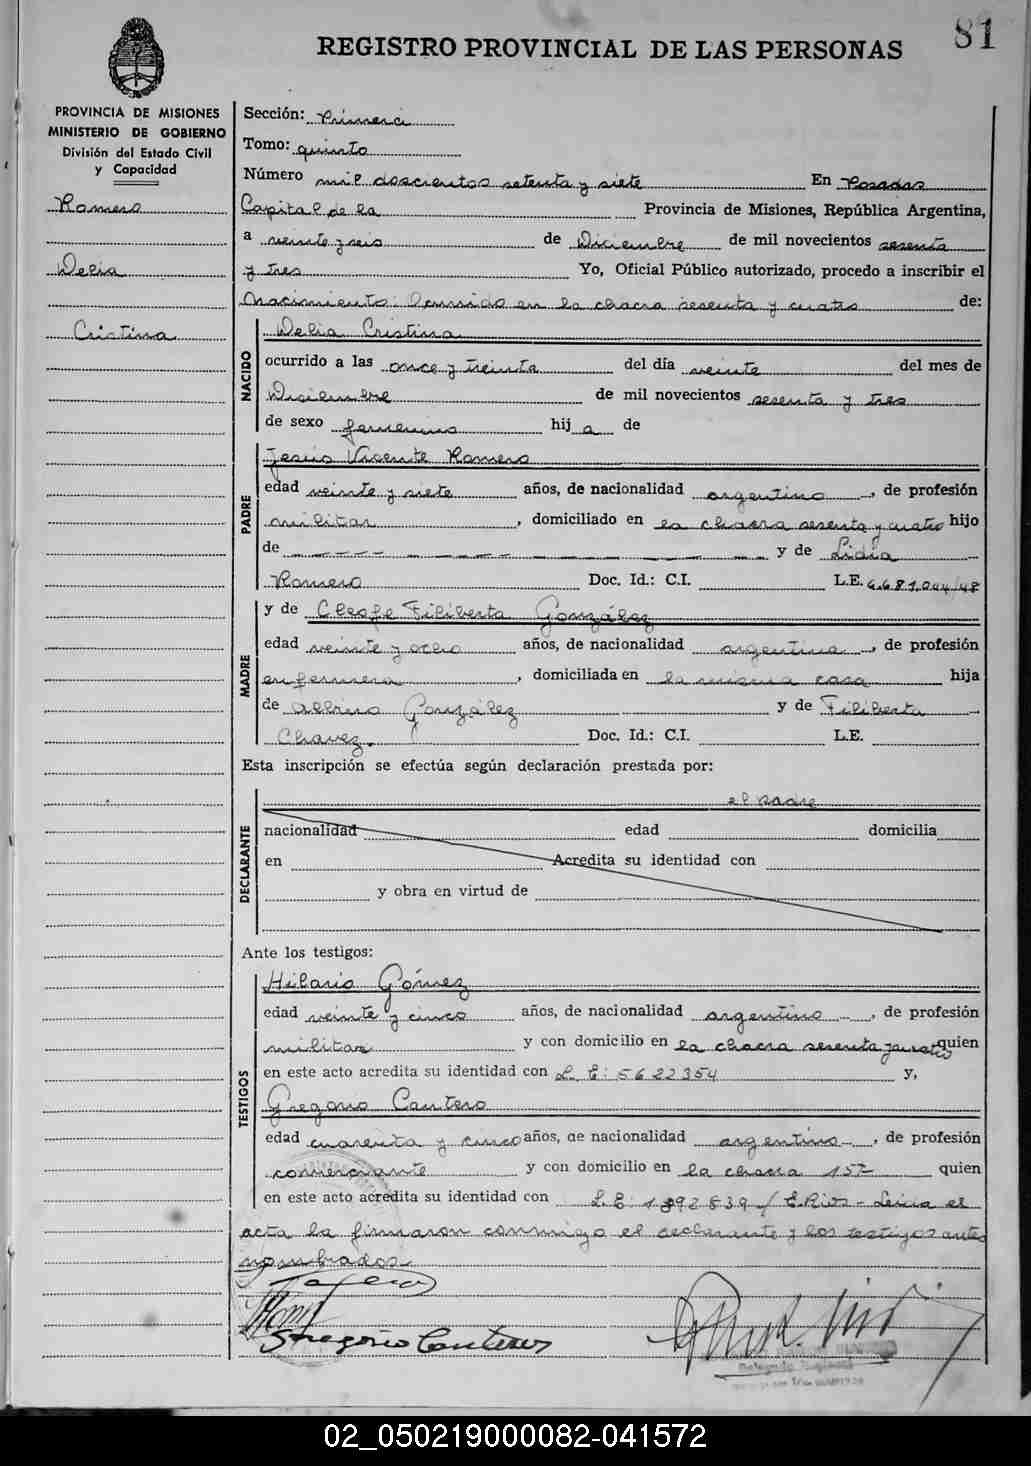 81
REGISTRO PROVINCIAL DE LAS PERSONAS
PROVINCIA DE MISIONES
MINISTERIO DE GOBIERNO
División del Estado Civil
y Capacidad
Romero
Delia
Cristina
Sección: Primera
Tomo: quinto
Número mil doscientos setenta y siete En Posadas
Capital de la Provincia de Misiones, República Argentina,
a veinte y seis de Diciembre de mil novecientos sesenta
y tres Yo, Oficial Público autorizado, procedo a inscribir el
Nacimiento: Ocurrido en la chacra sesenta y cuatro de:
NACIDO
Delia Cristina
ocurrido a las once y treinta del día veinte del mes de
Diciembre de mil novecientos sesenta y tres
de sexo femenino hij a de
PADRE
Jesús Vicente Romero
edad veinte y siete años, de nacionalidad argentino, de profesión
militar, domiciliado en la chacra sesenta y cuatro hijo
de y de Lidia
Romero Doc. Id.: C.I. L.E.
MADRE
y de Cleofe Filiberta González
edad veinte y ocho años, de nacionalidad argentina, de profesión
enfermera, domiciliada en la misma casa hija
de Albino González y de Filiberta
Chavez. Doc. Id.: C.I. L.E.
Esta inscripción se efectúa según declaración prestada por:
el padre
DECLARANTE
nacionalidad edad domicilia
en Acredita su identidad con
y obra en virtud de
Ante los testigos:
TESTIGOS
Hilario Gómez
edad veinte y cinco años, de nacionalidad argentino, de profesión
militar y con domicilio en la chacra sesenta y cuatro quien
en este acto acredita su identidad con L. E: 5622354 y,
Gregorio Cantero
edad cuarenta y cinco años, de nacionalidad argentino, de profesión
comerciante y con domicilio en la chacra 157 quien
en este acto acredita su identidad con L.E: 1892839/ E.Rios- Leida el
acta la firmaron conmigo el declarante y los testigos antes
nombrados.
Gregorio Cantero
Delegado
02_050219000082-041572